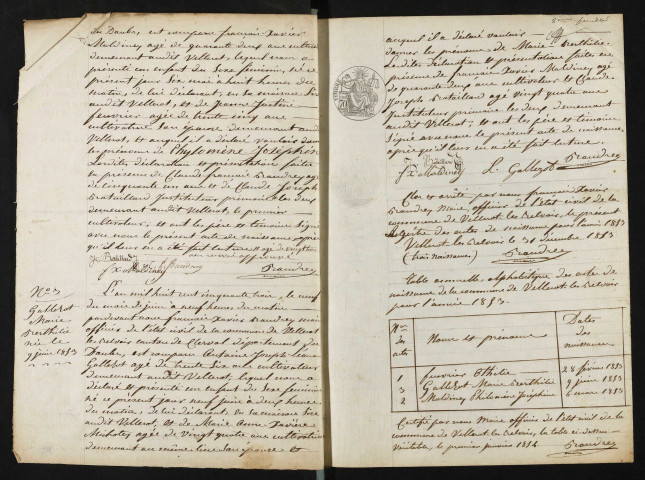 du Doubs, est comparu françois Xavier
Maldiney agé de quarante deux ans cultivateur
demeurant audit Vellerot, lequel nous a
présenté un enfant du sexe féminin, né ce
présent jour six mai à huit heures du
matin, de lui déclarant, en sa maison sise
audit Vellerot, et de Jeanne Justine
fevrier agée de trente cinq ans
cultivatrice son epouse demeurant audit
Vellerot, et auquel il a déclaré vouloir donner
les prénoms de Phylomène Joséphine
Lesdites déclaration et présentation faites
en présence de Claude françois Beaudrey agé
de cinquante un ans et de Claude Joseph
Bataillard Instituteur primaire les deux
demeurant audit Vellerot, le premier
cultivateur, et ont les père et témoins signé
avec nous le présent acte de naissance après
qu'il leur en a été fait lecture et agé de vingt quatre
ans
J. Bataillard
fX. Maldiney Beaudrey Beaudrey
No 3
Gallezot
Marie
Berthilie
née le
9 juin 1853
L'an mil huit cent cinquante trois, le neuf
du mois de juin à neuf heures du matin
pardevant nous françois Xavier Beaudrey maire
officier de l'état civil de la commune de Vellerot
les belvoir canton de Clerval département du
Doubs, est comparu Antoine Joseph
Gallezot agé de trente six ans cultivateur
demeurant audit Vellerot, lequel nous a
déclaré et présenté un enfant du sexe féminin
né ce présent jour neuf juin à deux heures
du matin, de lui déclarant, en sa maison sise
audit Vellerot, et de Marie Anne Xavière
agée de vingt quatre ans cultivatrice
demeurant au même lieu son epouse et
auquel il a déclaré vouloir
donner les prénoms de Marie-Berthilie.
Lesdites déclaration et présentation faites en
présence de françois Xavier Maldiney agé
de quarante deux ans cultivateur et Claude
Joseph Bataillard agé vingt quatre ans
Instituteur primaire les deux demeurant
audit Vellerot, et ont les père et témoins
signé avec nous le présent acte de naissance,
après qu'il leur en a été fait lecture.
J. Bataillard
fX. Maldiney L. Gallezot Beaudrey
Clos et arrêté par nous françois Xavier
Beaudrey Maire officier de l'état civil de la
commune de Vellerot les Belvoir, le présent
registre des actes de naissance pour l'année 1853
Vellerot les belvoir le 31 décembre 1853
(trois naissances.) Beaudrey
Table annuelle alphabétique des actes de
naissance de la commune de Vellerot les belvoir
pour l'année 1853.
Nos des actes
Noms et prénoms
Dates des naissances
1 fevrier Othilie 28 février 1853
3 Gallezot Marie Berthilie 9 juin 1853
2 Maldiney Philomène Joséphine 6 mars 1853
Certifié par nous Maire officier de l'état civil de la
commune de Vellerot les belvoir, la table ci-dessus
véritable, le premier janvier 1854 Beaudrey